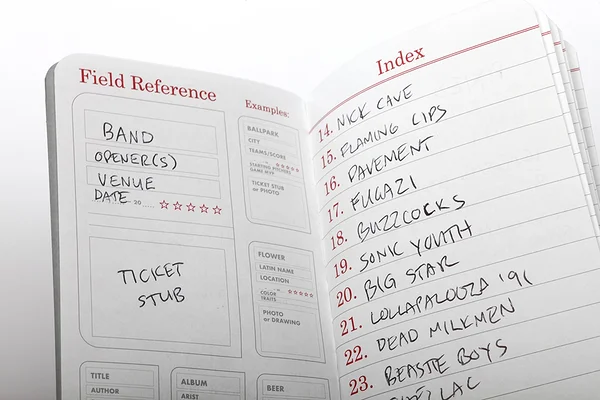 Field Reference
BAND
OPENER(S)
VENUE
DATE 20
TICKET
STUB
Examples:
BALLPARK
CITY
TEAMS/SCORE
STARTING PITCHERS
GAME MVP
TICKET STUB
or PHOTO
FLOWER
LATIN NAME
LOCATION
COLOR
TRAITS
PHOTO
or DRAWING
TITLE
AUTHOR
ALBUM
ARIST
BEER
Index
14. NICK CAVE
15. FLAMING LIPS
16. PAVEMENT
17. FUGAZI
18. BUZZCOCKS
19. SONIC YOUTH
20. BIG STAR
21. LOLLAPALOOZA '91
22. DEAD MILKMEN
23. BEASTIE BOYS